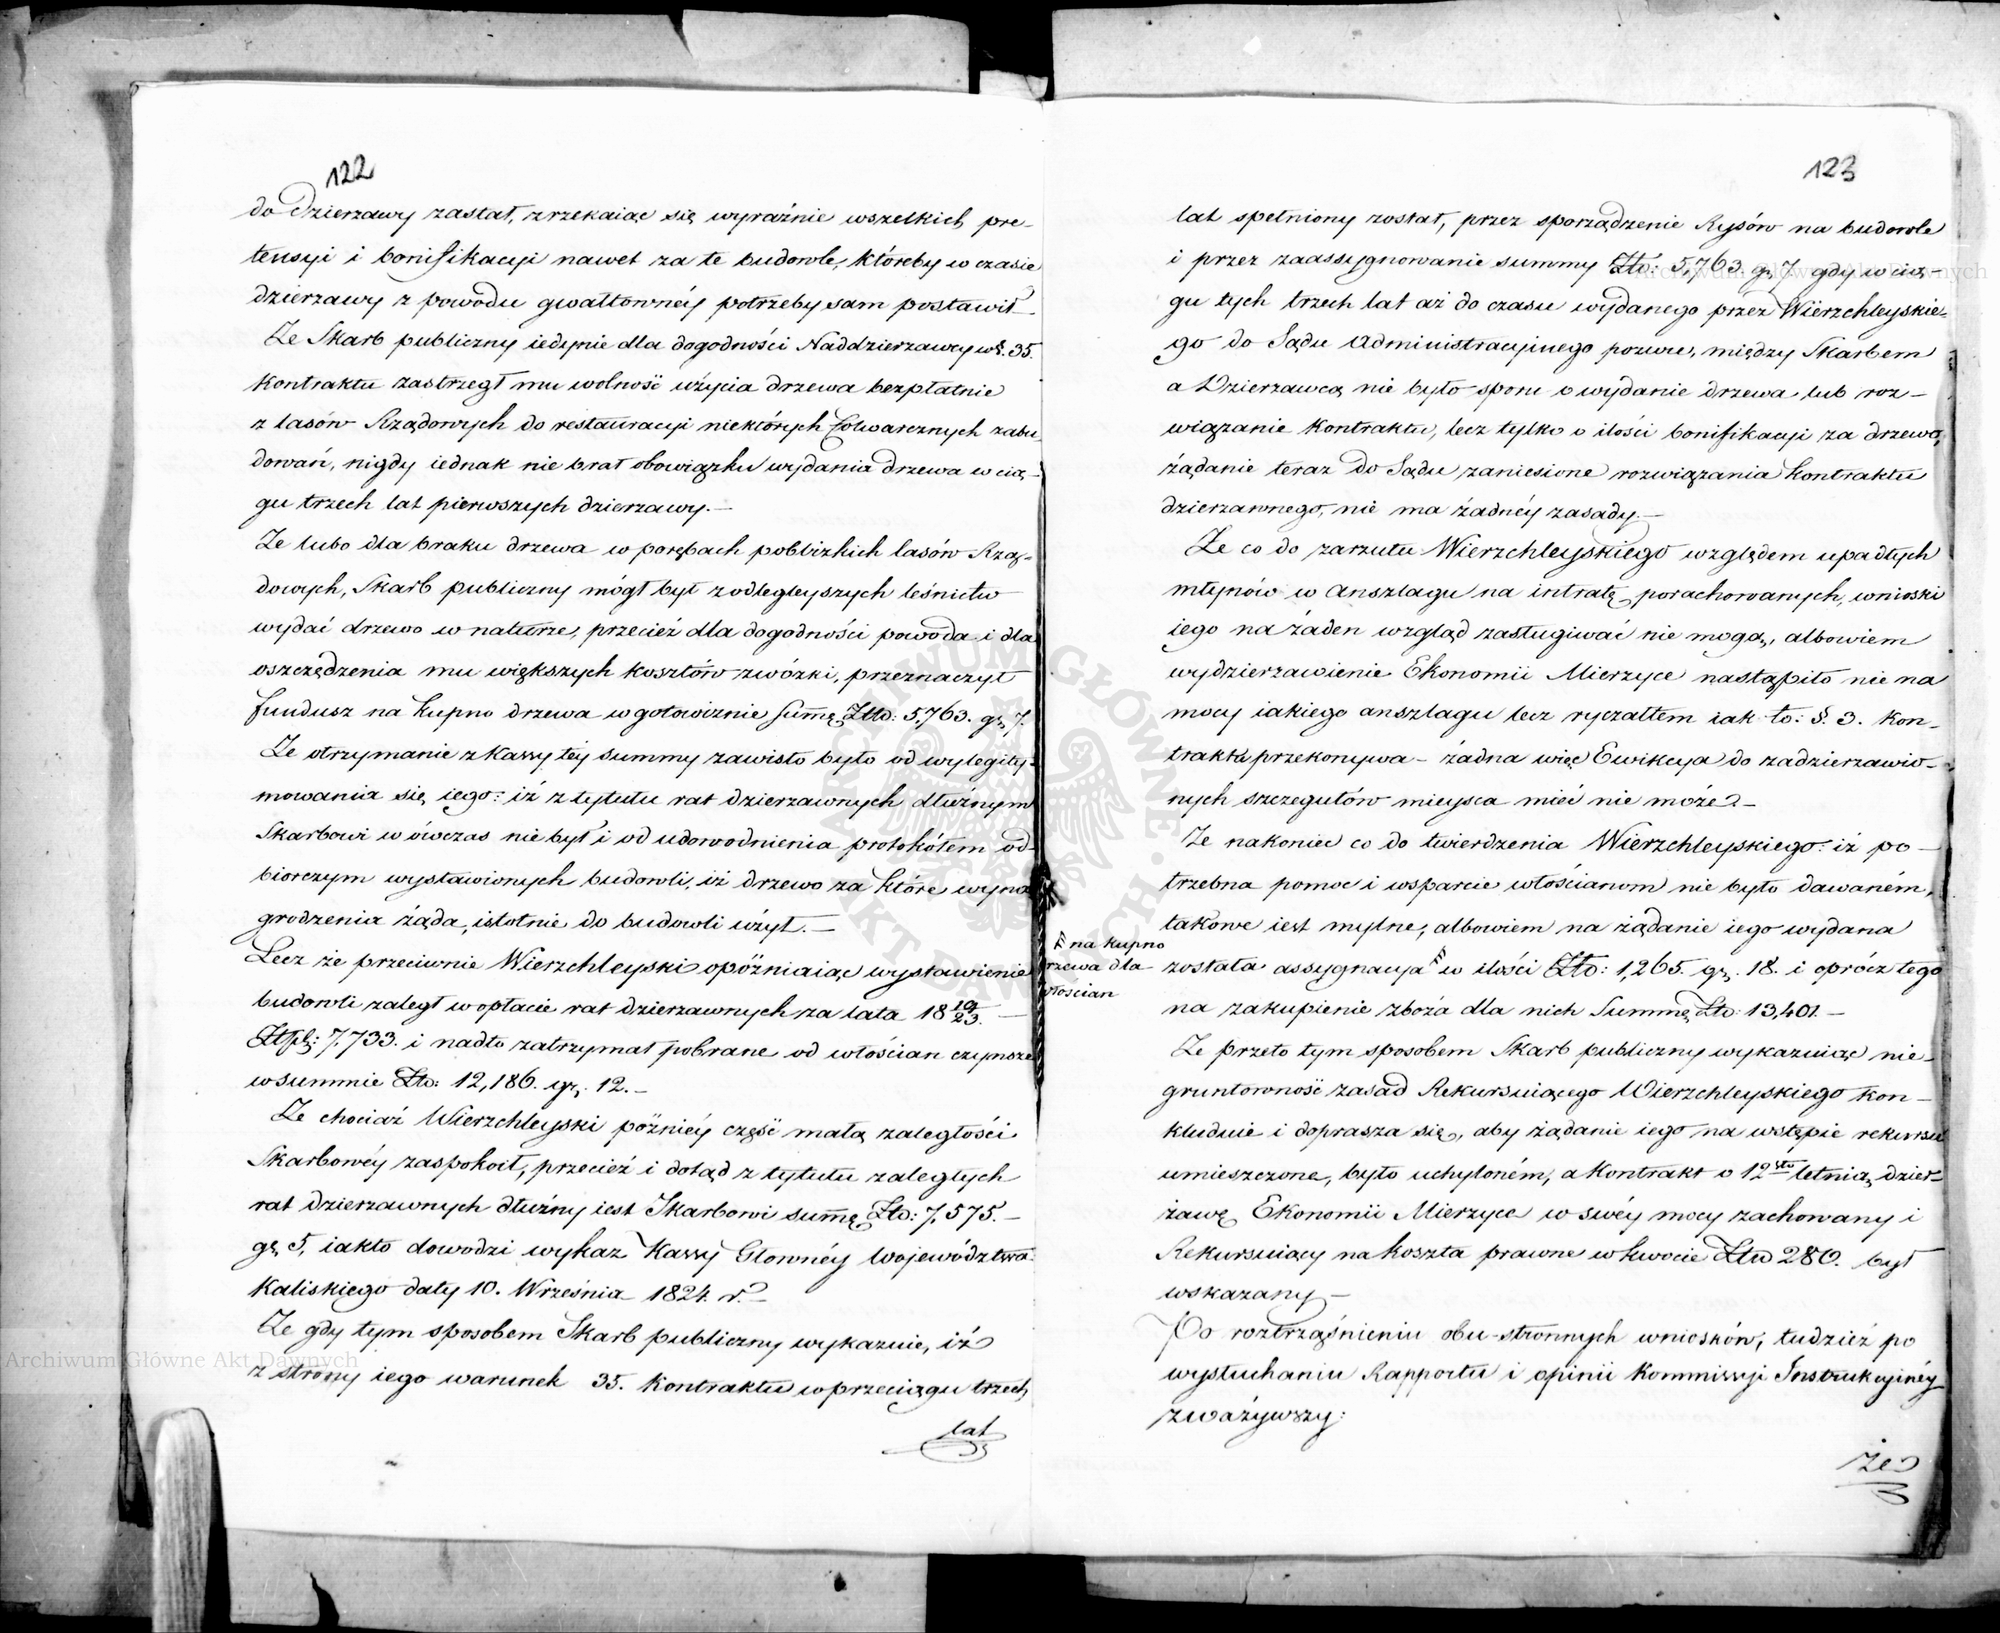 122
do Dzierzawy zastał, zrzekaiąc się wyraźnie wszelkich pre-
tensyi i bonifikacyi nawet za te budowle, któreby w czasie
dzierzawy z powodu gwałtownéy potrzeby sam postawił_
Ze Skarb publiczny iedynie dla dogodności Naddzierzawcy w §. 35.
Kontraktu zastrzegł mu wolność użycia drzewa bezpłatnie
z lasów Rządowych do restauracyi niektórych folwarcznych zabu
dowań, nigdy iednak nie brał obowiązku wydania drzewa w cią-
gu trzech lat pierwszych dzierzawy.—
Ze lubo dla braku drzewa w porębach pobliżkich lasów Rzą-
dowych, Skarb publiczny mógł był z odlegleyszych leśnictw
wydać drzewo w naturze, przecież dla dogodności powoda i dla
oszczędzenia mu większych kosztów zwózki, przeznaczył
fundusz na kupno drzewa w gotowiznie summę Złto: 5,763. gr. 7.
Ze otrzymanie z Kassy téy summy zawisło było od wylegity-
mowania się iego: iż z tytułu rat dzierzawnych dłużnym
Skarbowi wówczas nie był i od udowodnienia protokółem od
biorczym wystawionych budowli, iż drzewo za które wyna
grodzenia żąda, istotnie do budowli użył.—
Lecz że przeciwnie Wierzchleyski opóźniaiąc wystawienie
budowli zaległ w opłacie rat dzierzawnych za lata 18 19/23. —
Złtpl: 7,733. i nadto zatrzymał pobrane od włościan czynsze
w summie Złto: 12,186. gr. 12.—
Ze chociaż Wierzchleyski późniéy część małą zaległości
Skarbowéy zaspokoił, przecież i dotąd z tytułu zaległych
rat dzierzawnych dłużny iest Skarbowi summę Złto: 7,575.—
gr. 5, iak to dowodzi wykaz Kassy Głownéy Województwa
Kaliskiego daty 10. Września 1824. r.—
Ze gdy tym sposobem Skarb publiczny wykazuie, iż
z strony iego warunek 35. Kontraktu w przeciągu trzech
lat
123
lat spełniony został, przez sporządzenie Rysów na budowle
i przez zaassygnowanie summy Złto: 5,763. gr. 7. gdy w cią-
gu tych trzech lat aż do czasu wydanego przez Wierzchleyskie-
go do Sądu Administracyjnego pozwu, między Skarbem
a Dzierzawcą nie było sporu o wydanie drzewa lub roz-
wiązanie Kontraktu, lecz tylko o ilości bonifikacyi za drzewo,
żądanie teraz do Sądu zaniesione rozwiązania Kontraktu
dzierzawnego, nie ma żadnéy zasady.—
Ze co do zarzutu Wierzchleyskiego względem upadłych
młynów w Anszlagu na intratę porachowanych, wnioski
iego na żaden wzgląd zasługiwać nie mogą, albowiem
wydzierzawienie Ekonomii Mierzyce nastąpiło nie na
mocy iakiego anszlagu lecz ryczałtem iak to: §. 3. Kon-
traktu przekonywa – żadna więc Ewikcya do zadzierzawio-
nych szczegułów mieysca mieć nie może.—
Ze nakoniec co do twierdzenia Wierzchleyskiego: iż po-
trzebna pomoc i wsparcie włościanom nie było dawaném,
takowe iest mylne, albowiem na żądanie iego wydana
na kupno
rzewa dla
włoscian
została assygnacya w ilości Złto: 1,265. gr. 18. i oprócz tego
na zakupienie zboża dla nich Summę Złto: 13,401.—
Ze przeto tym sposobem Skarb publiczny wykazuiąc nie-
gruntowność zasad Rekursuiącego Wierzchleyskiego kon-
kluduie i doprasza się, aby żądanie iego na wstępie rekursu
umieszczone, było uchyloném, a Kontrakt o 12sto letnią dzier-
żawę Ekonomii Mierzyce w swéy mocy zachowany i
Rekursuiący na koszta prawne w kwocie Złto 280. był
wskazany—
Po roztrząśnieniu obu-stronnych wniosków, tudzież po
wysłuchaniu Rapportu i opinii Kommissyi Instrukcyinéy
zważywszy:
że